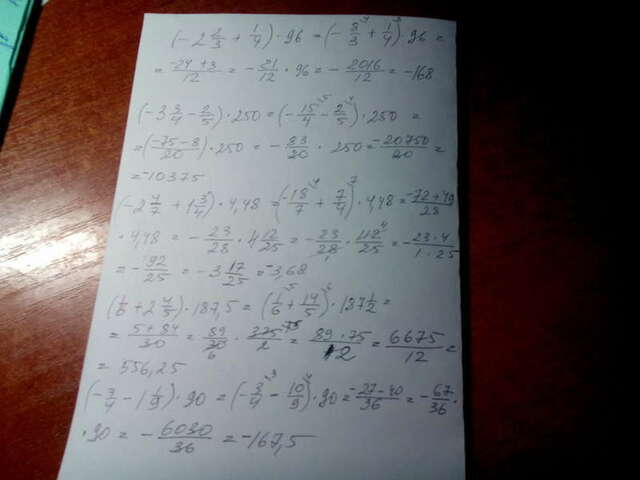 (-2 2/3 + 1/4) · 96 = (- 8/3 + 1/4) · 96 =
= -24+3/12 = - 21/12 · 96 = - 2016/12 = -168
(-3 3/4 - 2/5) · 250 = (- 15/4 - 2/5) · 250 =
= (-75-8/20) · 250 = - 83/20 · 250 = -20750/20 =
= -10375
(-2 4/7 + 1 3/4) · 4,48 = (-18/7 + 7/4) · 4,48 = -72+49/28
· 4,48 = - 23/28 · 4 12/25 = - 23/28 · 112/25 = - 23·4/1·25
= - 92/25 = -3 17/25 = -3,68
(1/6 + 2 4/5) · 187,5 = (1/6 + 14/5) · 187 1/2 =
= 5+84/30 = 89/30 · 375/2 = 89·75/12 = 6675/12 =
= 556,25
(- 3/4 - 1 1/9) · 90 = (- 3/4 - 10/9) · 90 = -27-40/36 = - 67/36 ·
· 90 = - 6030/36 = -167,5